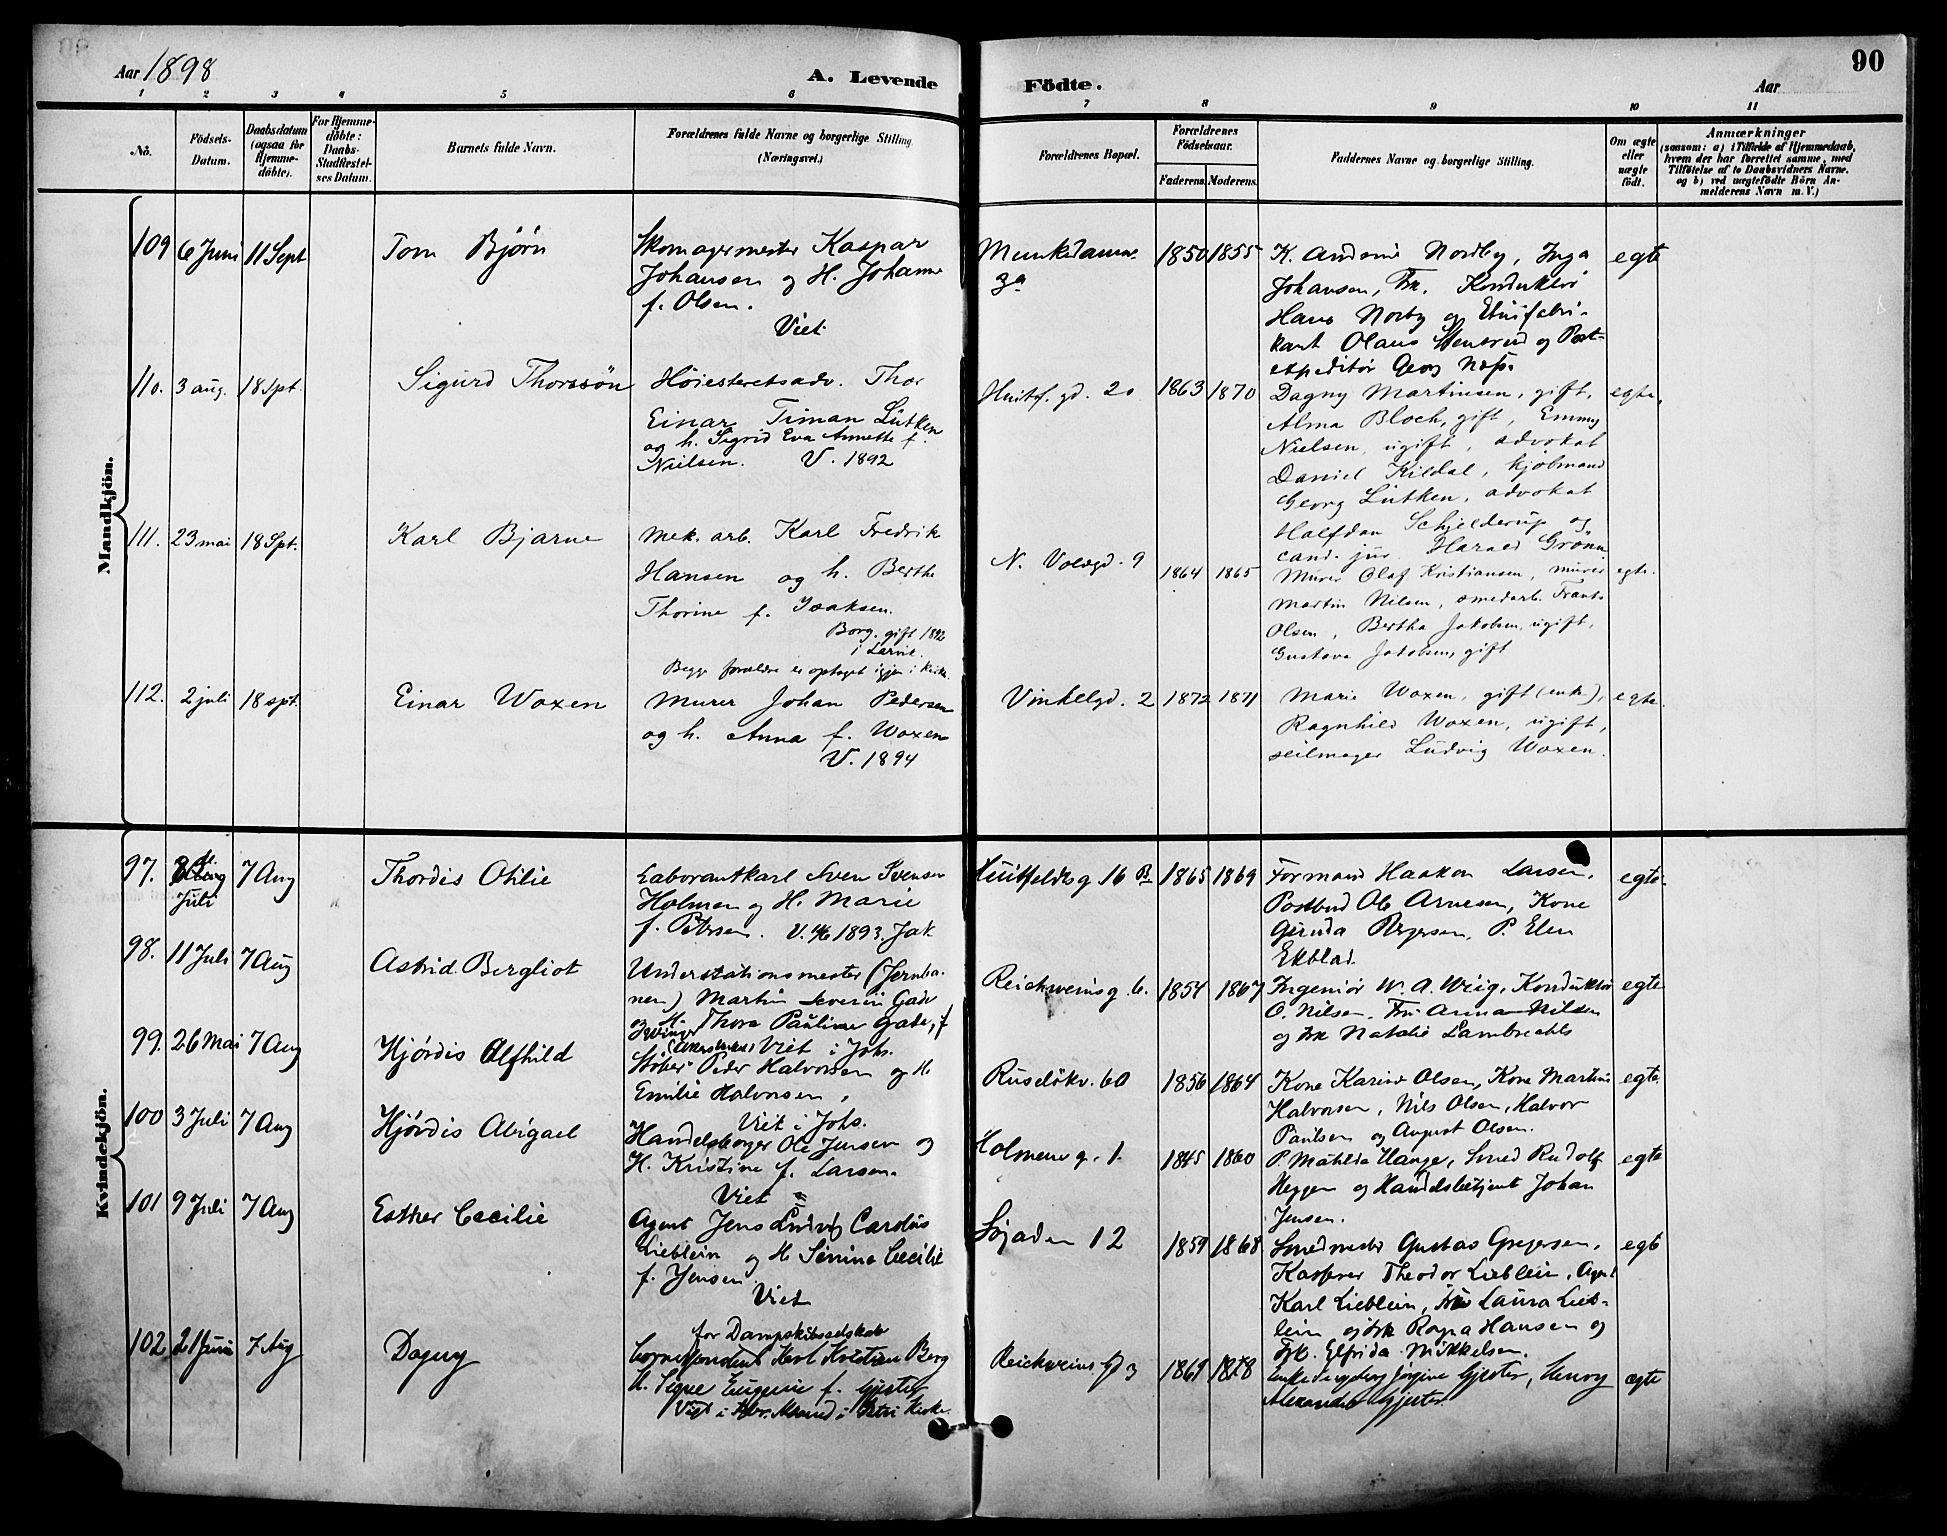 Aar 1898
A. Levende
Födte.
Aar
90
1 2 3 4 5 6 7 8 9 10 11
Nô.
Födsels-
Datum.
Daabsdatum
(ogsaa for
Hjemme-
döbte).
For Hjemme-
döbte:
Daabs-
Stadfæstel-
ses Datum.
Barnets fulde Navn.
Forældrenes fulde Navne og borgerlige Stilling
(Næringsvei.)
Forældrenes Bopæl.
Forældrenes
Födselsaar.
Faderens. Moderens.
Faddernes Navne og borgerlige Stilling.
Om ægte
eller
uægte
födt.
Anmærkninger
(saasom: a) i Tilfælde af Hjemmedaab,
hvem der har forrettet samme, med
Tilföielse af to Daabsvidners Navne.
og b) ved uægtefödte Börn An-
melderens Navn m. V.)
Mandkjön.
109 6 Juni 11 Sept
Tom Bjørn
Skomagermester Kaspar
Johansen og H. Johanne
f. Olsen.
Viet
Munkedamsv.
3a
1850 1855
K. Nordby, Inga
Johansen, Frk. Konduktør
Hans Norby og Etuifabri-
kant Olaus Stensrud og Post-
expeditør Georg Næss.
egte
110. 3 aug. 18 Spt
Sigurd Thorssøn
Høiesteretsadv. Thor
Einar Timan Lütken
og h. Sigrid Eva Annette f.
Nielsen. V. 1892
Huitf. gd. 20
1863 1870
Dagny Martinsen, gift,
Alma Bloch, gift, Emmy
Nielsen, ugift, advokat
Daniel Kildal, kjøbmand
Georg Lütken, advokat
Halfdan Schjelderup og
cand. jur. Harald Grønn
egte.
111. 23 mai 18 Spt.
Karl Bjarne
Mek. arb. Karl Fredrik
Hansen og h. Berthe
Thorine f. Isaksen.
Borg. gift 1892
i Larvik.
Begge forældre er optaget igjen i kirken
N. Voldgd. 9
1864 1865
Murer Olaf Kristiansen, murer
Martin Nilsen, smedarb. Frants
Olsen, Bertha Jakobsen, ugift,
Gustava Jakobsen, gift
egte.
112. 2 juli 18 spt.
Einar Woxen
Murer Johan Pedersen
og h. Anna f. Woxen
V. 1894
Vinkelgd. 2
1872 1871
Marie Woxen, gift (enke),
Ragnhild Woxen, ugift,
seilmager Ludvig Woxen.
egte.
Kvindekjön.
97. Juli 7 Aug
Thordis Otilie
Laborantkarl Sven Svensen
Holmen og H. Marie
f. Petersen. V. 1893. Jak
Huitfeldts g 16 B
1865 1869
Formand Haakon Larsen,
Postbud Ole Arnesen, Kone
Gerinda P. Elen
Ekblad.
egte.
98. 11 Juli 7 Aug
Astrid Bergliot
Understationsmester (Jernba-
nen) Martin Severin Gade
og H. Thora Pauline Gade, f
(Akershus) Viet i Johs.
Reichweinsg. 6.
1854 1867
Ingeniør W. A. Konduktør
O. Nilsen. Fru Anna Nilsen
og Frk Natalie Lambrechts
egte
99. 26 Mai 7 Aug
Hjørdis Alfhild
Støber Peder Halvorsen og H.
Emilie Halvorsen,
Viet i Johs.
Ruseløkv. 60
1856 1864
Kone Karine Olsen, Kone Martine
Halvorsen, Nils Olsen, Halvor
Paulsen og August Olsen.
egte.
100 3 Juli 7 Aug
Hjørdis Abigael
Handelsborger Ole Jensen og
H. Kristine f. Larsen.
Viet
Holmens g. 1.
1845 1860
P. Matilda Hange, Smed Rudolf
Heggen og Handelsbetjent Johan
Jensen.
egte
101 9 Juli 7 Aug
Esther Cecilie
Agent Jens Ludvig Carolus
Lieblein og H. Simina Cecilie
f. Jensen
Viet
Søgaden 12
1859 1868
Smedmester Gustav Gregersen,
Kasserer Theodor Lieblein, Agent
Karl Lieblein, Fru Laura Lieb-
lein og Frk Ragna Hansen og
Frk. Elfrida Mikkelsen.
egte
102 21 Juni 7 Aug
Dagny
for Dampskibsselskab
Correspondent Karl Kristian Berg
H. Signe Eugenie f. Gjester
Viet i Petri Kirke.
Reichweins gd 3
1869 1878
Jørgine Gjester, Henry
Alexander Gjester
ægte